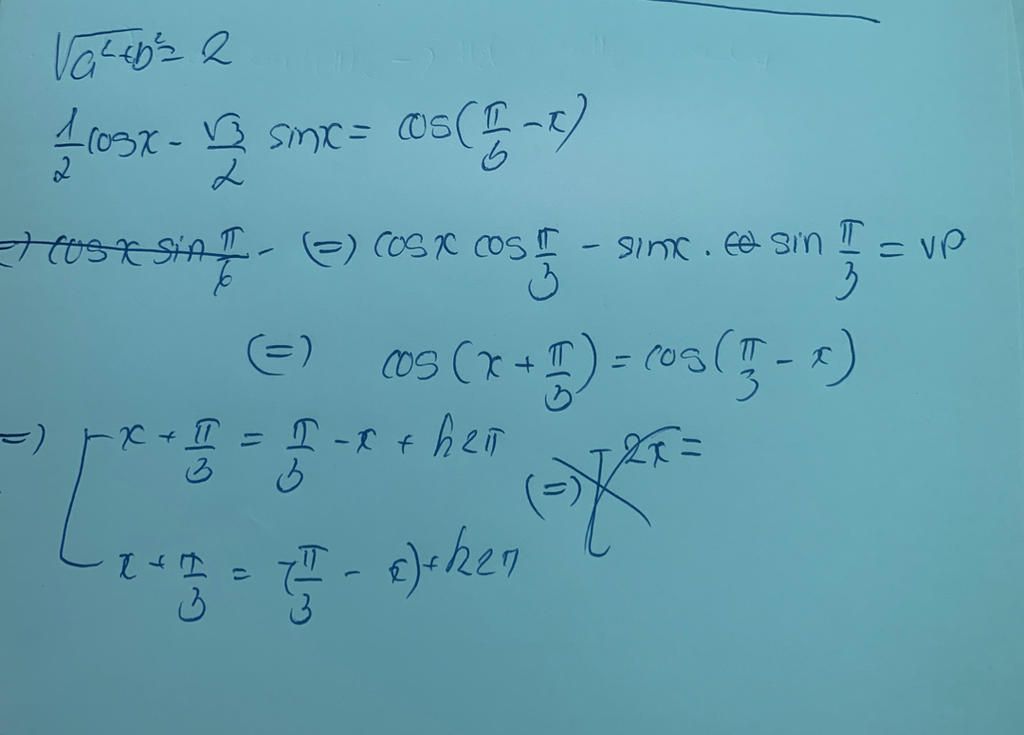 √a²+b² = 2
1/2 cosx - √3/2 sinx = cos(π/6 - x)
=) cosx sin π/6 - (=) cosx cos π/3 - sinx . sin π/3 = VP
(=) cos(x + π/3) = cos(π/3 - x)
=) [ x + π/3 = π/3 - x + k2π (=) [ 2x =
x + π/3 = -(π/3 - x) + k2π